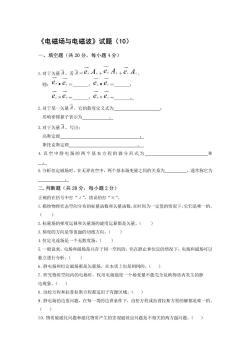 《电磁场与电磁波》试题（10）
一、填空题（共 20 分，每小题 4 分）
1.对于矢量 A，若 A = e A + e A + e A，
则：
2.对于某一矢量 A，它的散度定义式为 ；
用哈密顿算子表示为 。
3.对于矢量 A，写出：
高斯定理 ；
斯托克斯定理 。
4.真空中静电场的两个基本方程的微分形式为 和
。
5.分析恒定磁场时，在无界真空中，两个基本场变量之间的关系为 ，通常称它为
二.判断题（共 20 分，每小题 2 分）
正确的在括号中打“√”，错误的打“×”。
1.描绘物理状态空间分布的标量函数和矢量函数，在时间为一定值的情况下，它们是唯一的。
（ ）
2.标量场的梯度运算和矢量场的旋度运算都是矢量。（ ）
3.梯度的方向是等值面的切线方向。（ ）
4.恒定电流场是一个无散度场。（ ）
5.一般说来，电场和磁场是共存于同一空间的，但在静止和恒定的情况下，电场和磁场可以
独立进行分析。（ ）
6.静电场和恒定磁场都是矢量场，在本质上也是相同的。（ ）
7.研究物质空间内的电场时，仅用电场强度一个场变量不能完全反映物质内发生的静
电现象。（ ）
8.泊松方程和拉普拉斯方程都适用于有源区域。（ ）
9.静电场的边值问题，在每一类的边界条件下，泊松方程或拉普拉斯方程的解都是唯一的。
（ ）
10.物质被磁化问题和磁化物质产生的宏观磁效应问题是不相关的两方面问题。（ ）